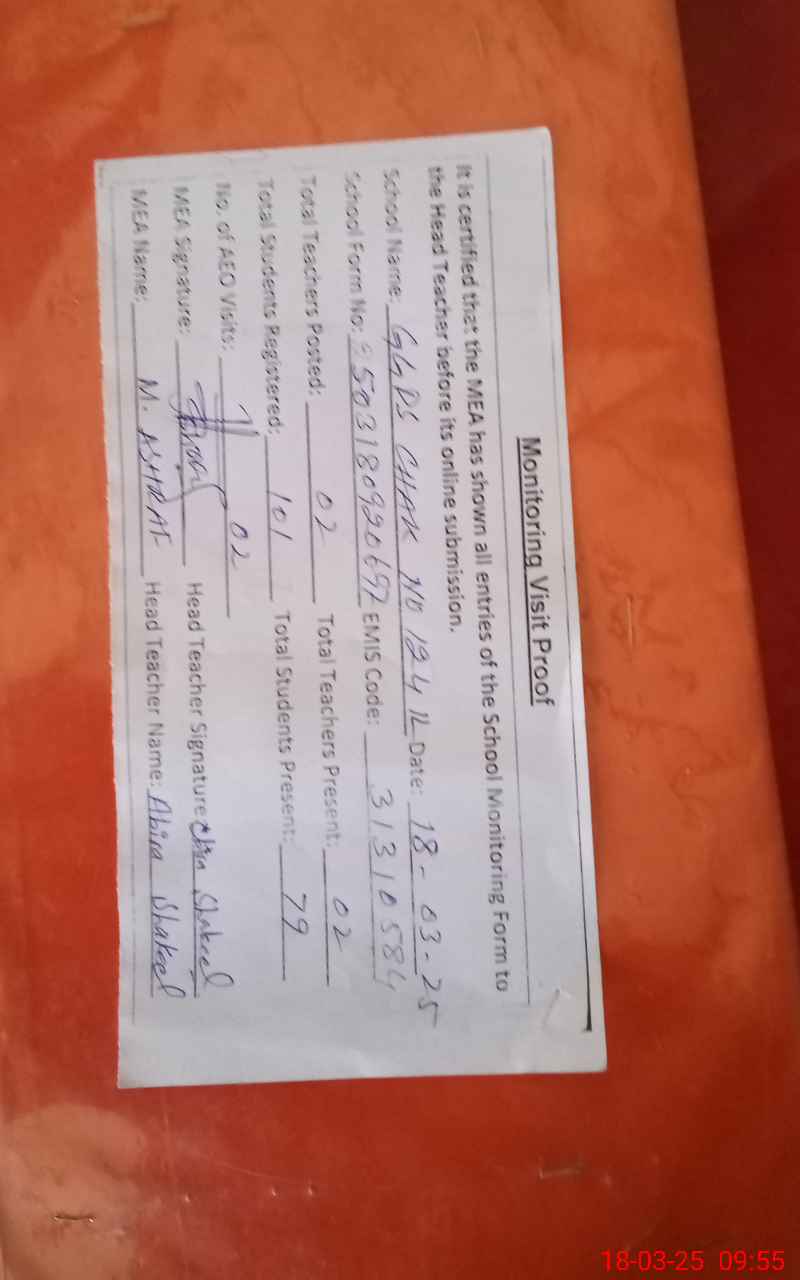 Monitoring Visit Proof
It is certified that the MEA has shown all entries of the School Monitoring Form to
the Head Teacher before its online submission.
School Name: GGPS CHAK NO 124 1L Date: 18-03-25
School Form No: 503180990692 EMIS Code: 31310584
Total Teachers Posted: 02 Total Teachers Present: 02
Total Students Registered: 101 Total Students Present: 79
No. of AEO Visits: 02
MEA Signature: Head Teacher Signature: Shakeel
MEA Name: M. ASHRAF Head Teacher Name: Abira Shakeel
18-03-25 09:55